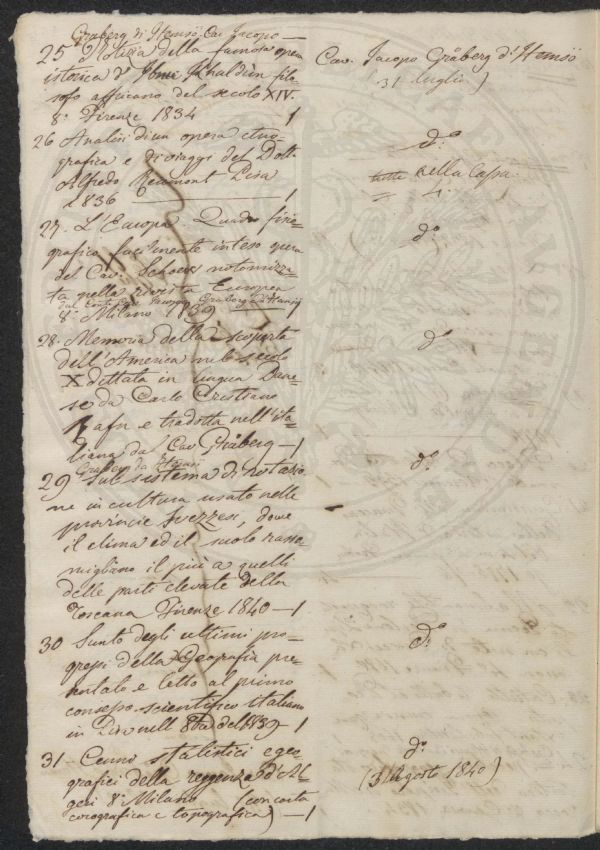 Graberg di Hemsö Cav. Jacopo
25 Notizia della famosa opera
istorica d'Ibnu Khaldùn filo-
sofo affricano del secolo XIV.
8.° Firenze 1834 — 1
Cav. Jacopo Gråberg d'Hemsö
(31 luglio)
26 Analisi di un opera etno-
grafica e di viaggi del Dott.
Alfredo Reumont Pisa
1836 — 1
d.°
tutte nella Cassa
4.
27. L'Europa. Quadro fisio-
grafico facilmente inteso opera
del Cav. Schouw notomizza-
ta nella rivista Europea
dal Conte Cav. Jacopo Graberg da Hemsö
8.° Milano 1839 — 1
d.°
28. Memoria della scoperta
dell'America nel secolo
X dettata in lingua Dane-
se da Carlo Cristiano
Rafn e tradotta nell'ita-
liana dal Cav. Gräberg — 1
d.°
Graberg da Hemsö
29 Sul sistema di rotazio
ne in cultura usato nelle
provincie Svezzesi, dove
il clima ed il suolo rasso-
migliano il più a quelli
delle parti elevate della
Toscana Firenze 1840 — 1
d.°
30 Sunto degli ultimi pro-
gressi della Geografia pre-
sentato e letto al primo
consesso scientifico italiano
in Pisa nell' 8bre del 1839 — 1
d.°
31 — Cenni statistici e geo-
grafici della reggenza d'Al-
geri 8.° Milano (con carta
corografica e topografica) — 1
d.°
(31 Agosto 1840)